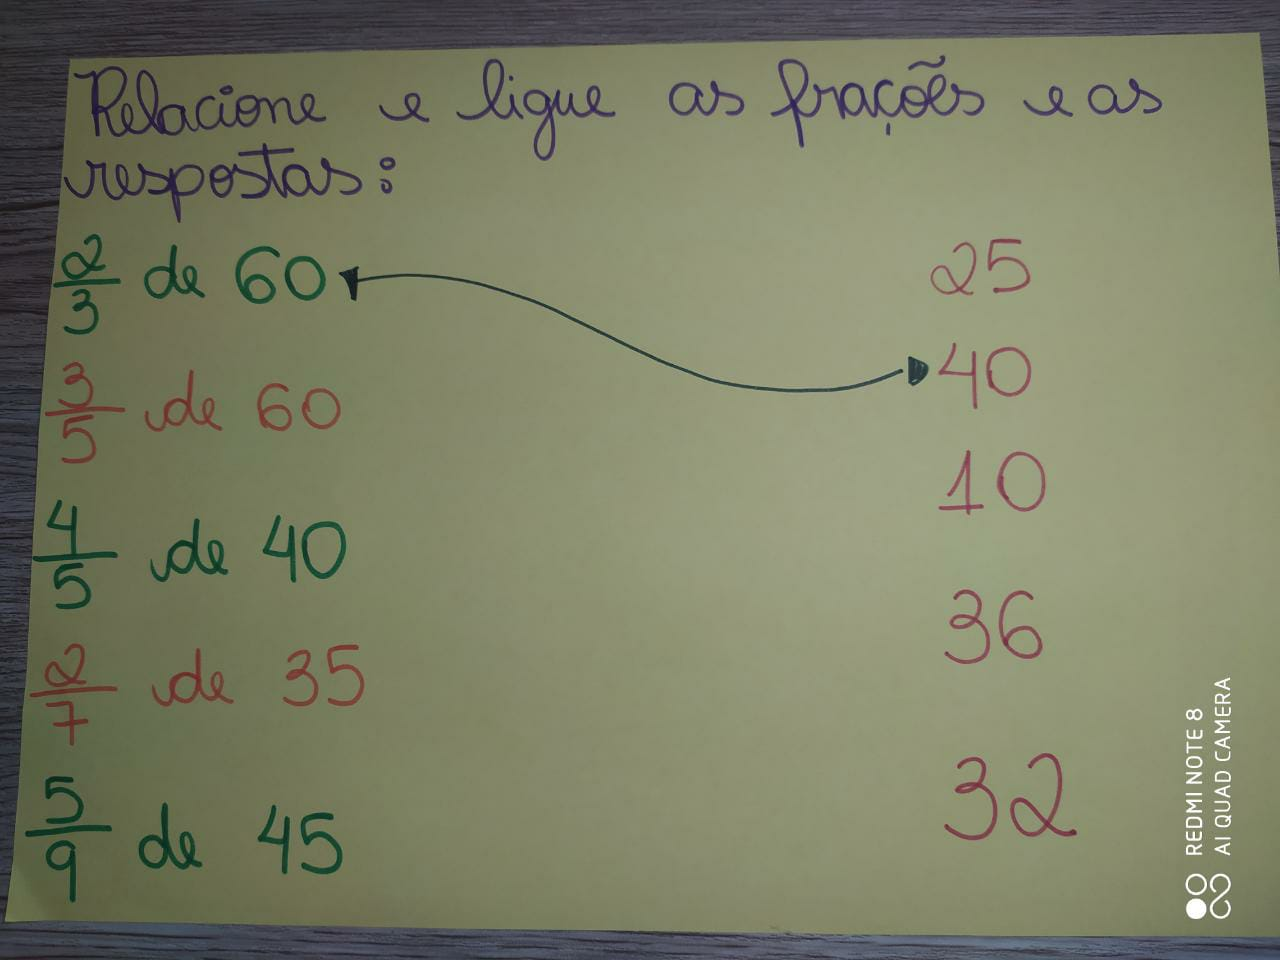 Relacione e ligue as frações e as
respostas:
2/3 de 60
25
40
3/5 de 60
10
4/5 de 40
36
2/7 de 35
32
5/9 de 45
REDMI NOTE 8
AI QUAD CAMERA